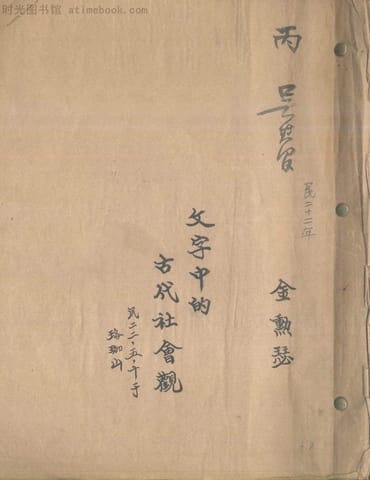 时光图书馆 atimebook.com
丙
民二十二年
金勲瑟
文字中的
古代社會觀
民二二.五.十于
珞珈山